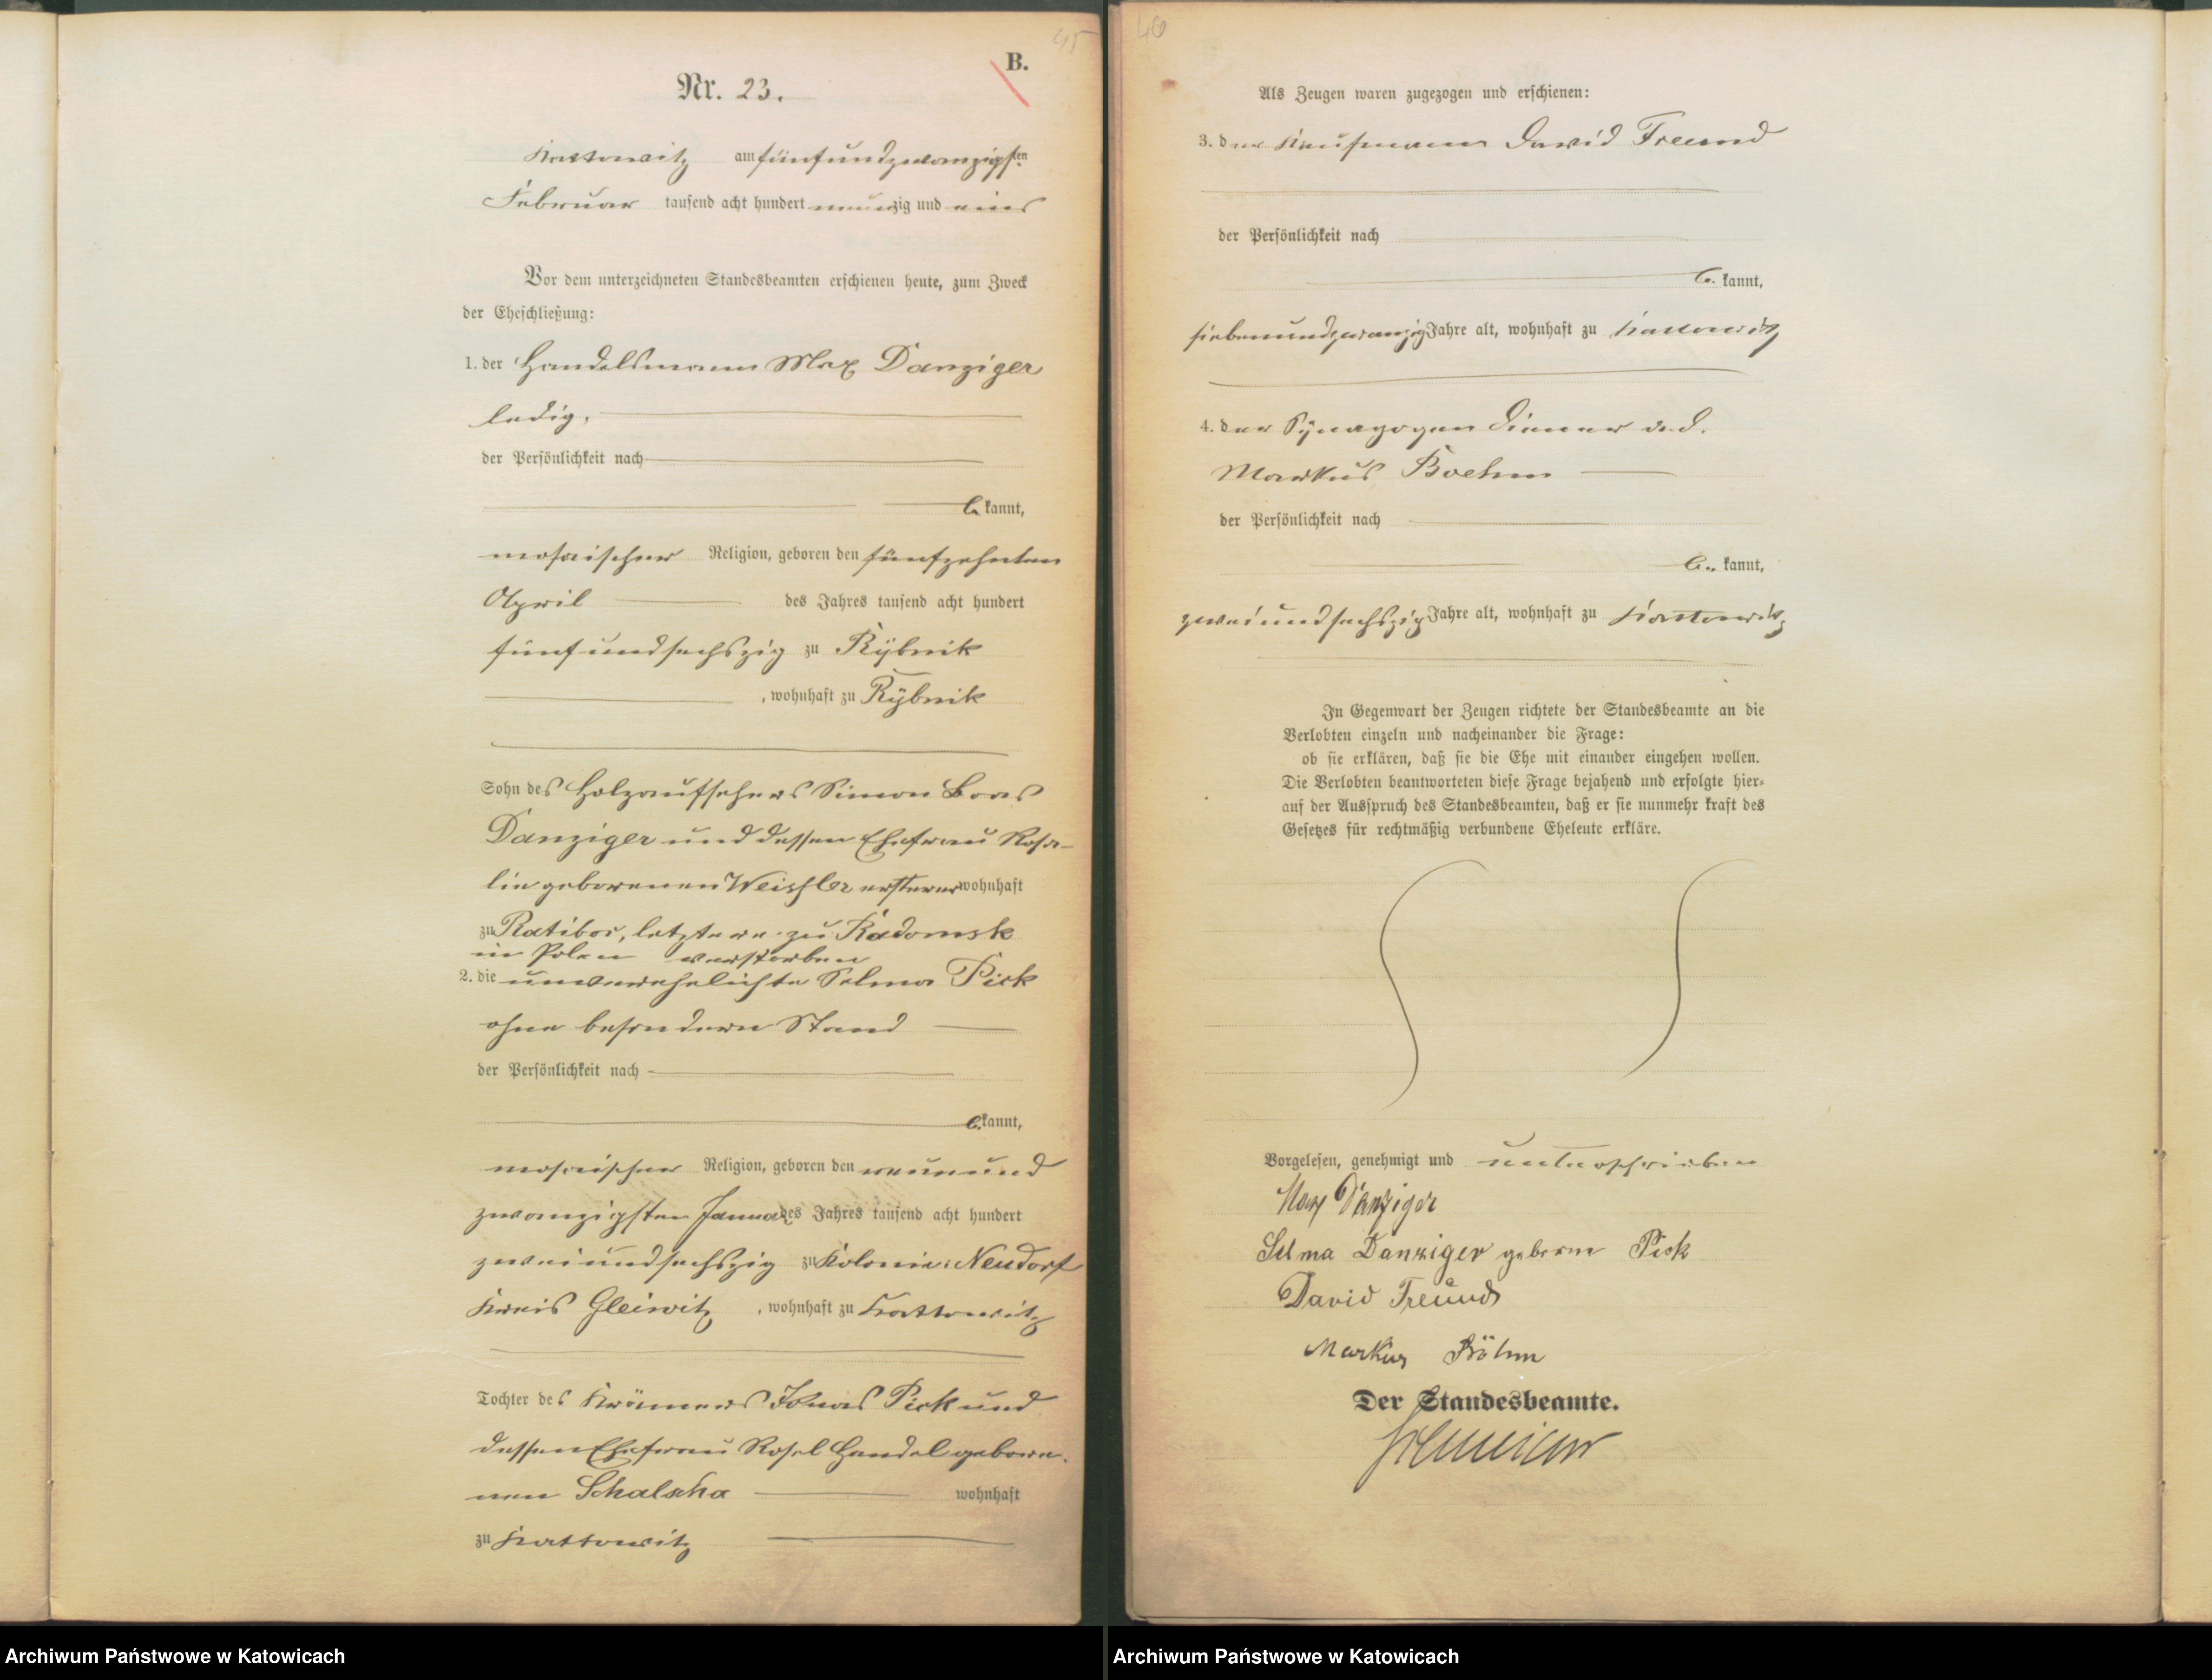 45
B.
Nr. 23.
Kattowitz am fünfundzwanzigsten
Februar tausend acht hundert neunzig und eins
Vor dem unterzeichneten Standesbeamten erschienen heute, zum Zweck
der Eheschließung:
1. der Handelsmann Max Danziger
ledig,
der Persönlichkeit nach
be kannt,
mosaischer Religion, geboren den fünfzehnten
April des Jahres tausend acht hundert
fünfundsechszig zu Rybnik
, wohnhaft zu Rybnik
Sohn des Holzaufsehers Simon Boas
Danziger und dessen Ehefrau Rosa-
lie geborenen Weissler ersterer wohnhaft
zu Ratibor, letztere zu Radomsk
in Polen verstorben
2. die unverehelichte Selma Pick
ohne besondern Stand
der Persönlichkeit nach
be kannt,
mosaischer Religion, geboren den neunund
zwanzigsten Januar des Jahres tausend acht hundert
zweiundsechszig zu Kolonie: Neudorf
Kreis Gleiwitz, wohnhaft zu Kattowitz
Tochter des Krämers Jonas Pick und
dessen Ehefrau Rosel Handel gebore-
nen Schalscha wohnhaft
zu Kattowitz
46
Als Zeugen waren zugezogen und erschienen:
3. der Kaufmann David Freund
der Persönlichkeit nach
be kannt,
siebenundzwanzig Jahre alt, wohnhaft zu Kattowitz
4. der Synagogen Diener a. d.
Markus Boehm
der Persönlichkeit nach
be kannt,
zweiundsechszig Jahre alt, wohnhaft zu Kattowitz
In Gegenwart der Zeugen richtete der Standesbeamte an die
Verlobten einzeln und nacheinander die Frage:
ob sie erklären, daß sie die Ehe mit einander eingehen wollen.
Die Verlobten beantworteten diese Frage bejahend und erfolgte hier-
auf der Ausspruch des Standesbeamten, daß er sie nunmehr kraft des
Gesetzes für rechtmäßig verbundene Eheleute erkläre.
Vorgelesen, genehmigt und unterschrieben
Max Danziger
Selma Danziger geborne Pick
David Freund
Markus Böhm
Der Standesbeamte.
Archiwum Państwowe w Katowicach
Archiwum Państwowe w Katowicach